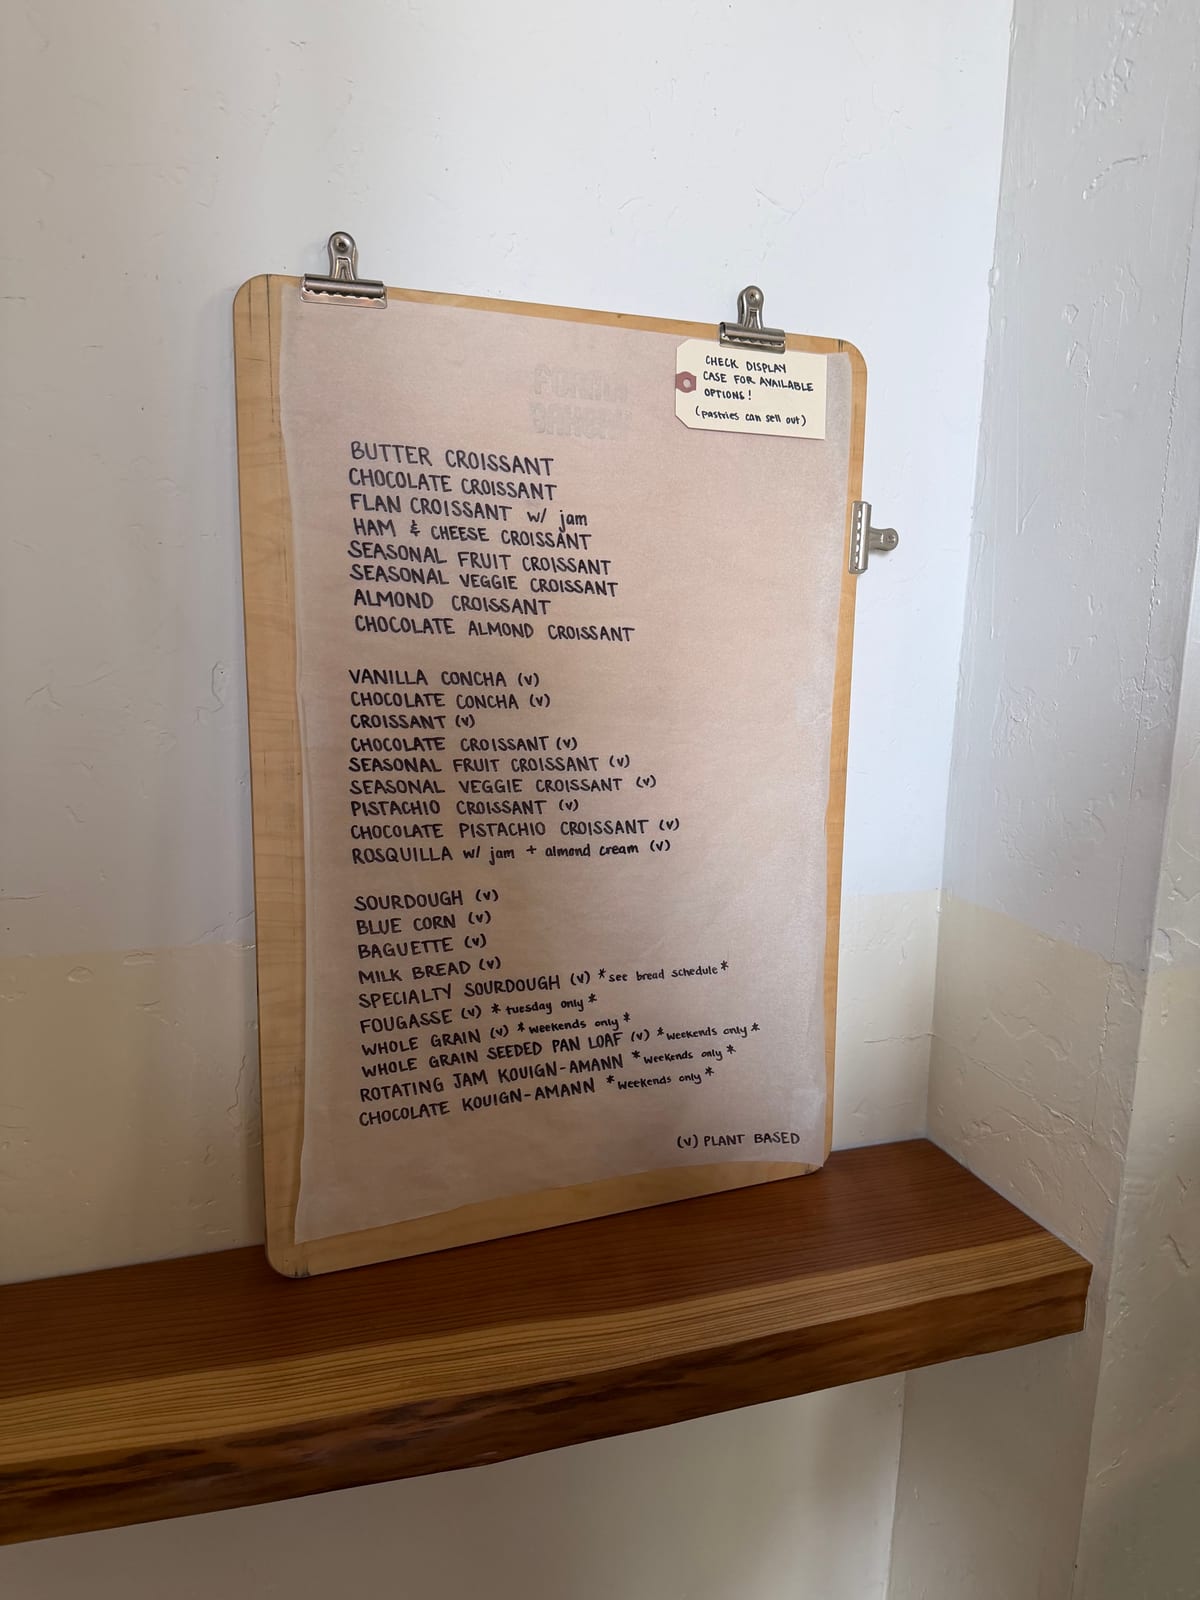 CHECK DISPLAY
CASE FOR AVAILABLE
OPTIONS!
(pastries can sell out)
BUTTER CROISSANT
CHOCOLATE CROISSANT
FLAN CROISSANT w/ jam
HAM & CHEESE CROISSANT
SEASONAL FRUIT CROISSANT
SEASONAL VEGGIE CROISSANT
ALMOND CROISSANT
CHOCOLATE ALMOND CROISSANT
VANILLA CONCHA (v)
CHOCOLATE CONCHA (v)
CROISSANT (v)
CHOCOLATE CROISSANT (v)
SEASONAL FRUIT CROISSANT (v)
SEASONAL VEGGIE CROISSANT (v)
PISTACHIO CROISSANT (v)
CHOCOLATE PISTACHIO CROISSANT (v)
ROSQUILLA w/ jam + almond cream (v)
SOURDOUGH (v)
BLUE CORN (v)
BAGUETTE (v)
MILK BREAD (v)
SPECIALTY SOURDOUGH (v) *see bread schedule*
FOUGASSE (v) *tuesday only*
WHOLE GRAIN (v) *weekends only*
WHOLE GRAIN SEEDED PAN LOAF (v) *weekends only*
ROTATING JAM KOUIGN-AMANN *weekends only*
CHOCOLATE KOUIGN-AMANN *weekends only*
(v) PLANT BASED